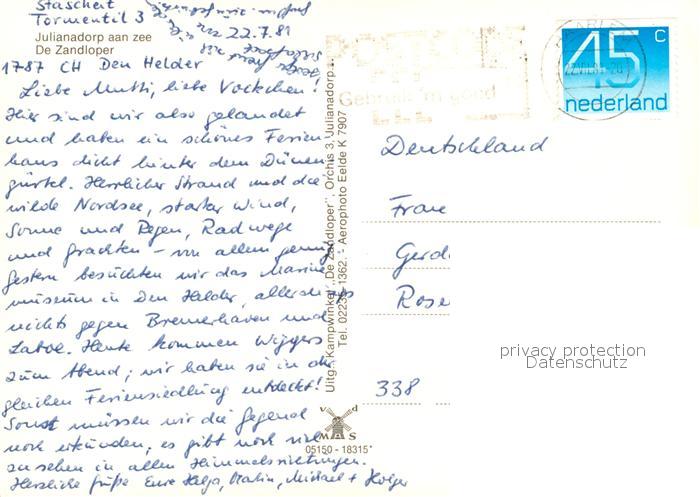 Staschert
Tormentil 3
22.7.81
Julianadorp aan zee
De Zandloper
1787 CH Den Helder
Liebe Mutti, liebe Vatchen!
Hier sind wir also gelandet
und haben ein schönes Ferien-
haus dicht hinter dem Dünen-
gürtel. Herrlicher Strand und die
wilde Nordsee, starker Wind,
Sonne und Regen, Radwege
und Grachten - von allem genug.
Gestern besuchten wir das Marine-
museum in Den Helder, allerdings
nichts gegen Bremerhaven und
Laboe. Heute kommen Wiggers
zum Abend; wir haben sie in der
gleichen Feriensiedlung entdeckt!
Sonst müssen wir die Gegend
noch erkunden, es gibt noch viel
zu sehen in allen Himmelsrichtungen.
Herzliche Grüße Eure Helga, Michael + Holger
Uitg.: Kampwinkel „De Zandloper”, Orchis 3, Julianadorp
Tel. 02239-1362. Aerophoto Eelde K 7907
v d
MAS
05150 - 18315
Gebruik 'm goed
45 c
nederland
Deutschland
Frau
Gerd
Rose
338
privacy protection
Datenschutz